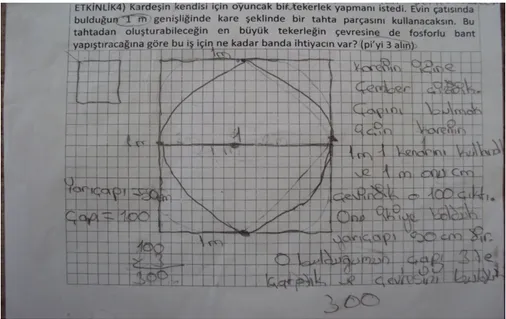 ETKİNLİK4) Kardeşin kendisi için oyuncak bir tekerlek yapmanı istedi. Evin çatısında
bulduğun 1 m genişliğinde kare şeklinde bir tahta parçasını kullanacaksın. Bu
tahtadan oluşturabileceğin en büyük tekerleğin çevresine de fosforlu bant
yapıştıracağına göre bu iş için ne kadar banda ihtiyacın var? (pi'yi 3 alın)
1m
1m
1
1m
Yarıçapı = 50cm
Çapı = 100
100
x 3
300
karenin içine
çember çizdik.
Çapını bulmak
için karenin
1m kenarını
ve 1 m onu cm
çevirdik = 100 çıktı.
Onu ikiye böldük
yarıçapı 50 cm dir.
O bulduğumuz çapı 3 le
çarptık ve çevresini bulduk
300